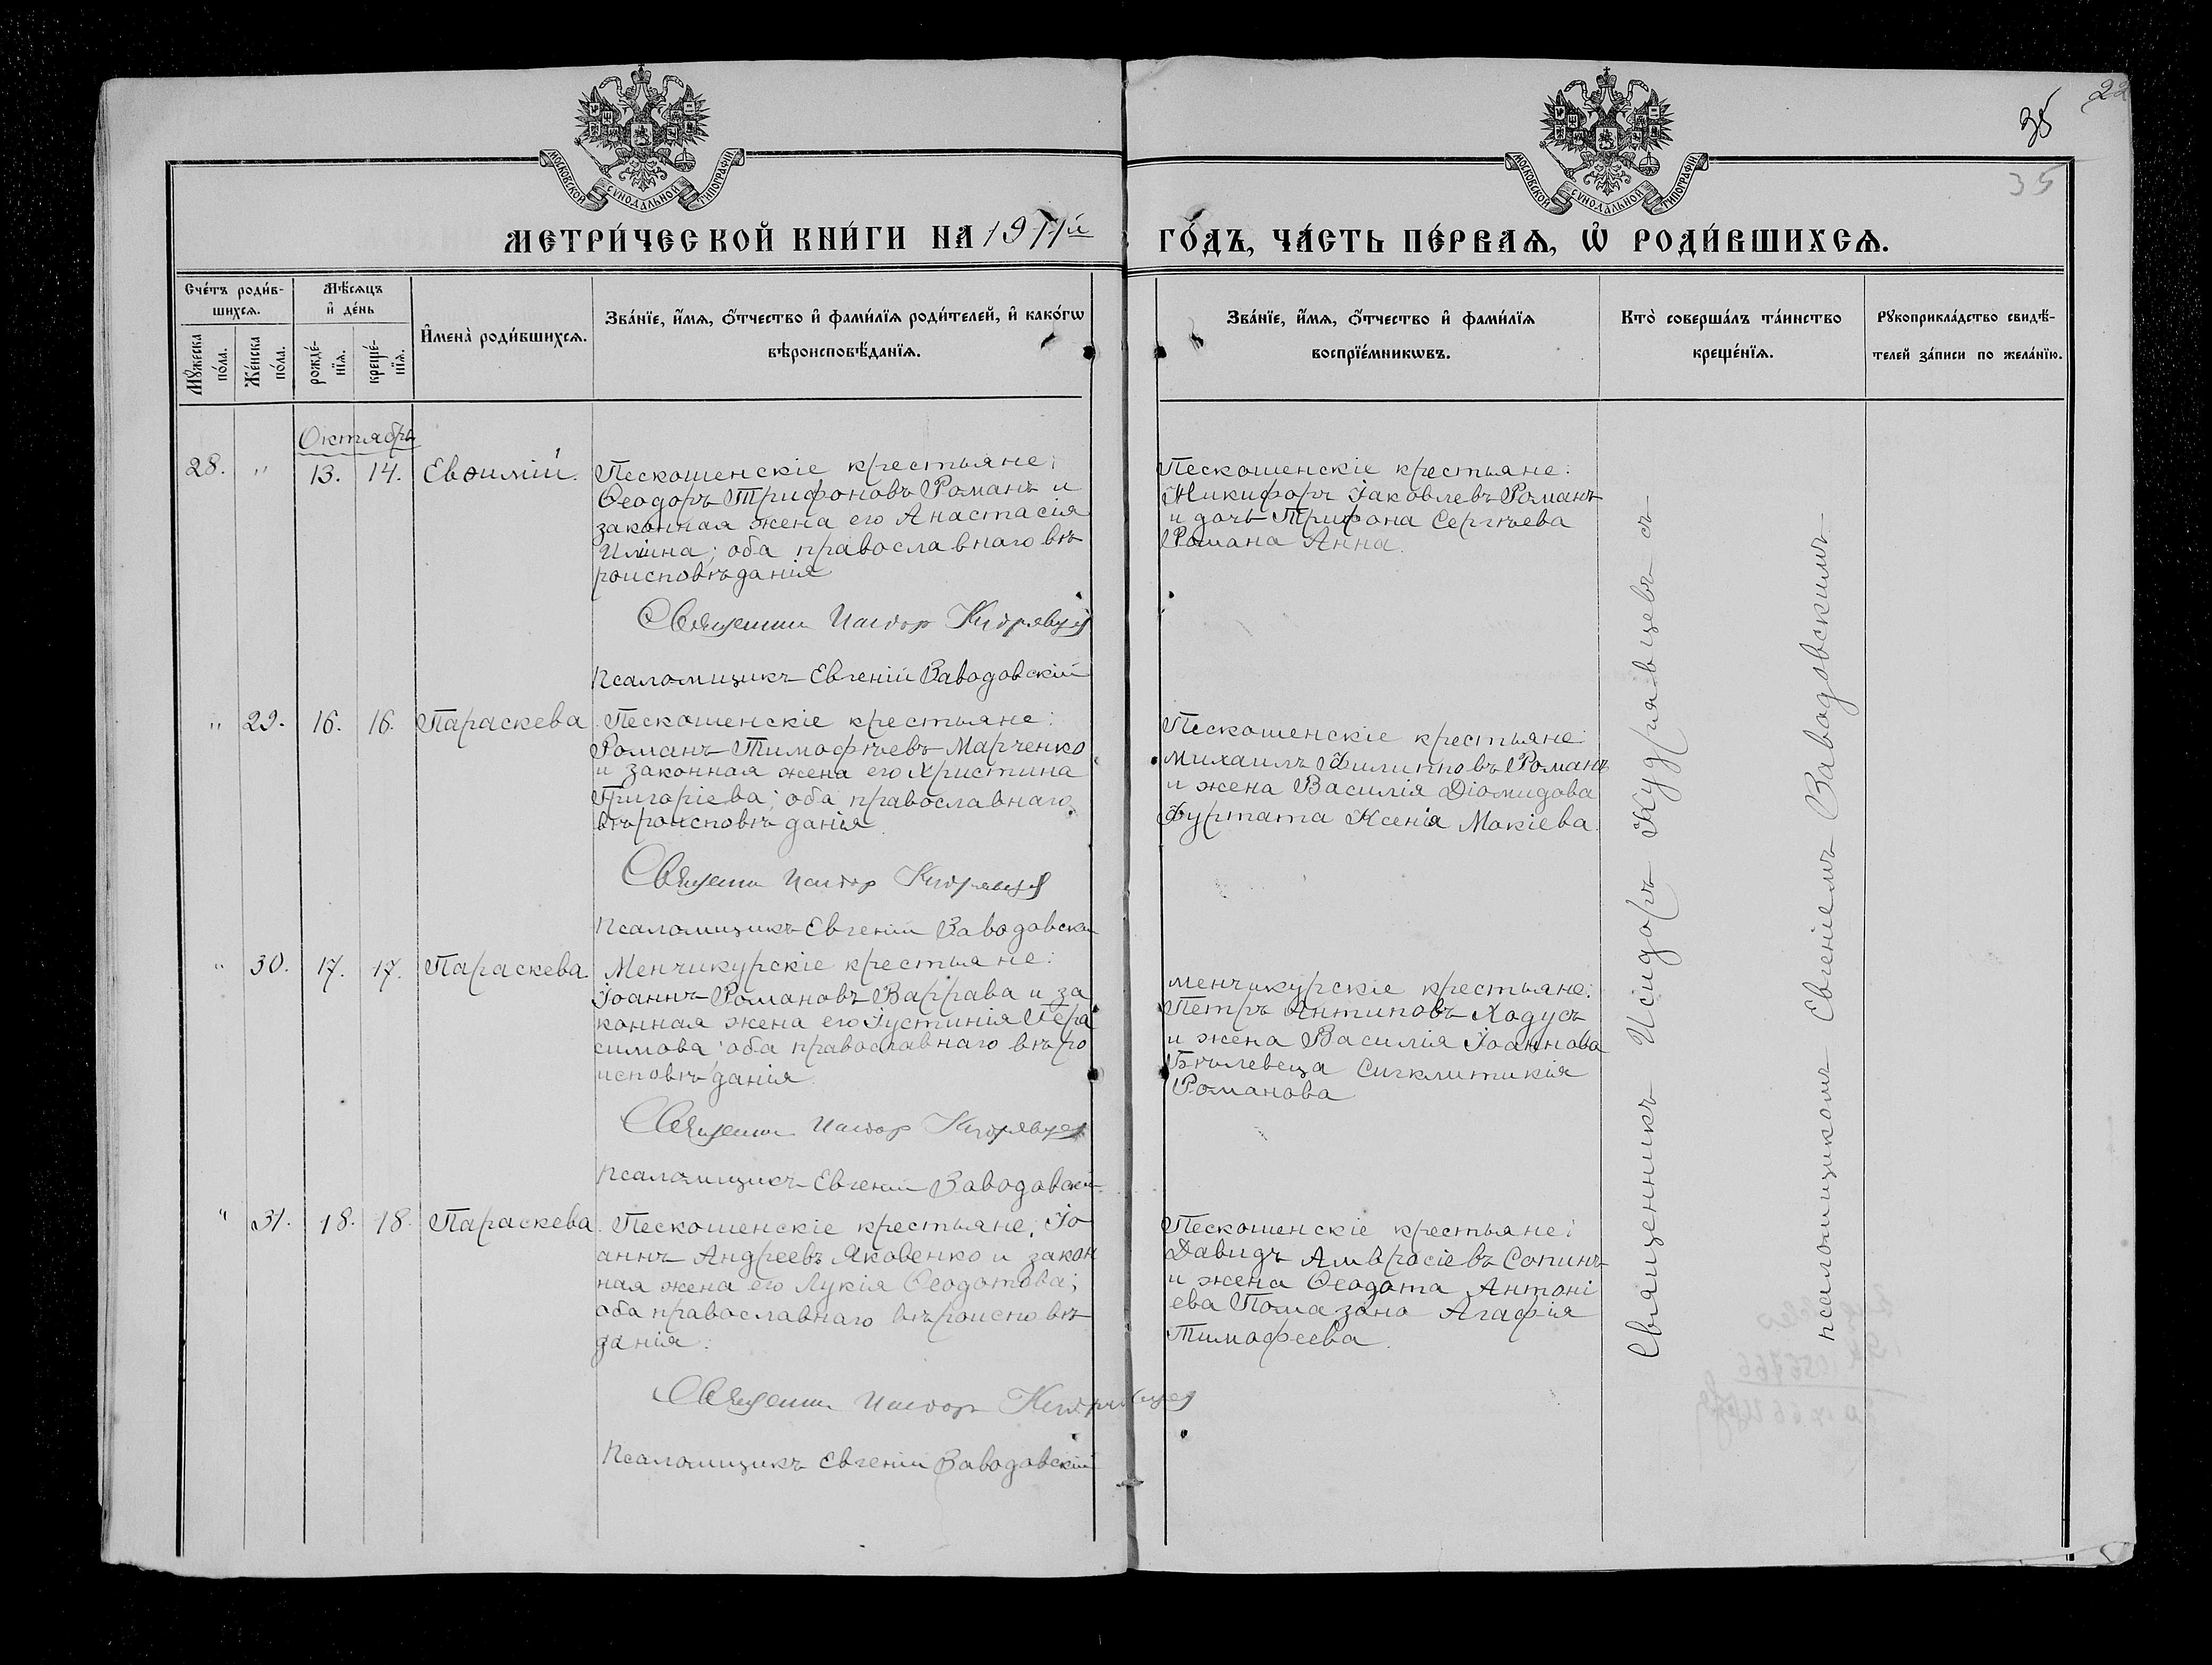 22
35
35
МОСКОВСКОЙ СѴНОДАЛЬНОЙ ТИПОГРАФІИ
МОСКОВСКОЙ СѴНОДАЛЬНОЙ ТИПОГРАФІИ
МЕТРИ́ЧЕСКОЙ КНИ́ГИ НА 1911й
ГО́ДЪ, ЧА́СТЬ ПЕ́РВАѦ, Ѡ҆ РОДИ́ВШИХСѦ.
Сче́тъ роди́в-
шихсѧ.
Мꙋ́жеска
по́ла.
Же́нска
по́ла.
Мѣ́сѧцъ
и҆ де́нь
рожде́-
нїѧ.
креще́-
нїѧ.
И҆мена̀ роди́вшихсѧ.
Зва́нїе, и҆́мѧ, ѻ҆́тчество и҆ фами́лїѧ роди́телей, и҆ како́гѡ
вѣроисповѣ́данїѧ.
Зва́нїе, и҆́мѧ, ѻ҆́тчество и҆ фами́лїѧ
воспрїе́мникѡвъ.
Кто̀ соверша́лъ та́инство
креще́нїѧ.
Рꙋкоприкла́дство свидѣ́-
телей за́писи по жела́нїю.
Октябрь
28. " 13. 14. Евѳимій.
Пескошенскіе крестьяне:
Ѳеодоръ Трифоновъ Романъ и
законная жена его Анастасія
Илiина; оба православнаго вѣ
роисповѣданія
Священник Исидор Кудрявцев
Псаломщикъ Евгеній Заводовскій
Пескошенскіе крестьяне:
Никифоръ Іаковлевъ Романъ
и дочь Трифона Сергѣева
Романа Анна.
" 29. 16. 16. Параскева.
Пескошенскіе крестьяне:
Романъ Тимофѣевъ Марченко
и законная жена его Христина
Григоріева; оба православнаго
вѣроисповѣданія.
Священник Исидор Кудрявцев
Псаломщикъ Евгеній Заводовскій
Пескошенскіе крестьяне:
Михаилъ Филипповъ Романъ
и жена Василія Діомидова
Фуртата Ксенія Мокіева.
" 30. 17. 17. Параскева.
Менчикурскіе крестьяне:
Іоаннъ Романовъ Варрава и за
конная жена его Іустинія Гера
симова; оба православнаго вѣро
исповѣданія.
Священник Исидор Кудрявцев
Псаломщикъ Евгеній Заводовскій
Менчикурскіе крестьяне:
Петръ Антиповъ Ходусъ
и жена Василія Іоаннова
Бѣлевеца Сигклитикія
Романова
" 31. 18. 18. Параскева.
Пескошенскіе крестьяне: Іо
аннъ Андреевъ Яковенко и закон
ная жена его Лукія Ѳеодотова;
оба православнаго вѣроисповѣ
данія.
Священник Исидор Кудрявцев
Псаломщикъ Евгеній Заводовскій
Пескошенскіе крестьяне:
Давидъ Амвросіевъ Сопинъ
и жена Ѳеодота Антоні
ева Помазана Агафія
Тимофеева.
Священникъ Исидоръ Кудрявцевъ съ
псаломщикомъ Евгеніемъ Заводовскимъ